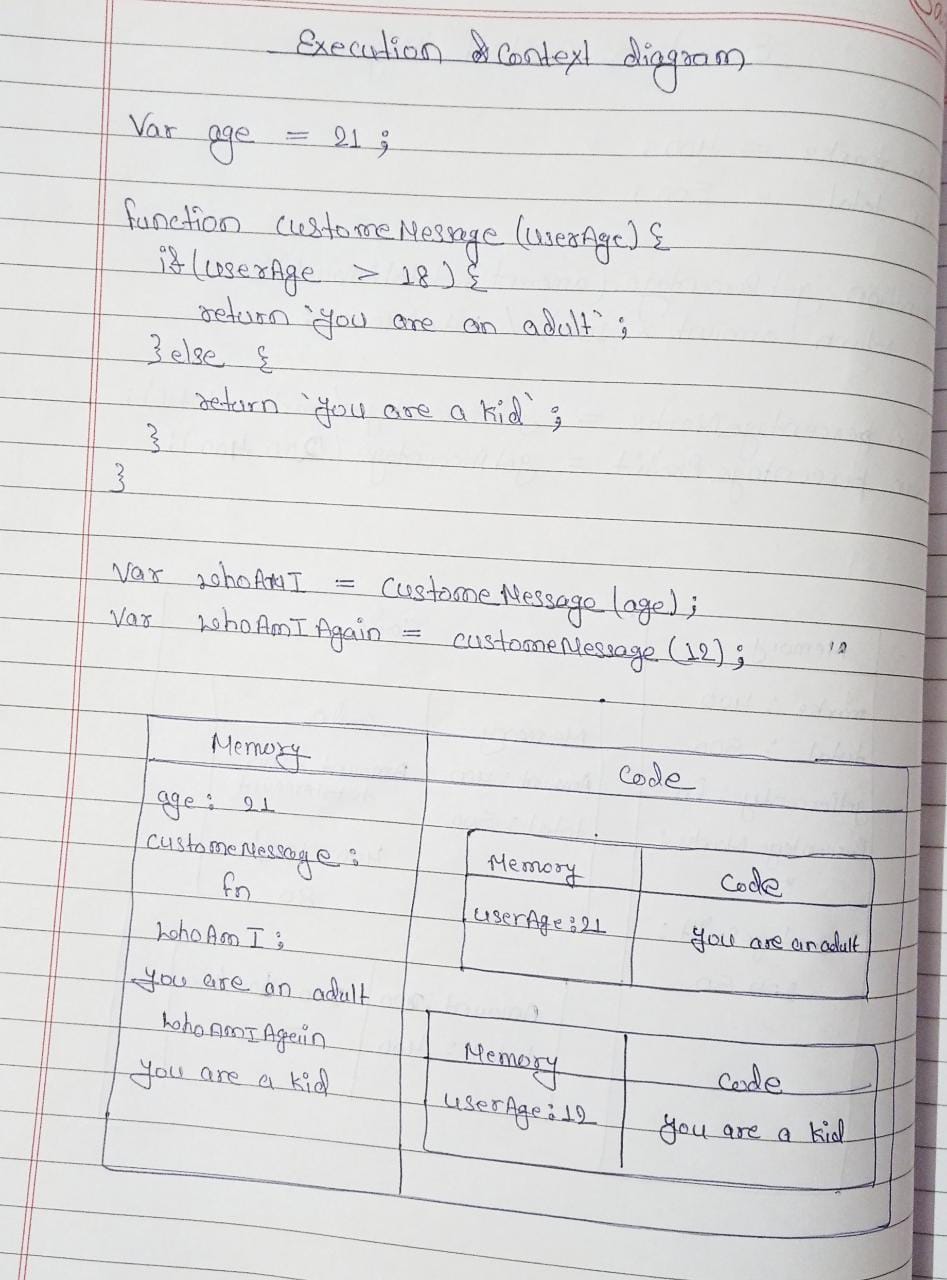 Execution & Context diagram
Var age = 21 ;
function customeMessage (userAge) {
if (userAge > 18) {
return `you are an adult` ;
} else {
return `you are a kid` ;
}
}
Var whoAmI = customeMessage (age) ;
Var whoAmIAgain = customeMessage (12) ;
Memory
Code
age : 21
customeMessage :
fn
whoAmI :
you are an adult
whoAmIAgein
you are a kid
Memory
Code
userAge : 21
you are an adult
Memory
Code
userAge : 12
you are a kid